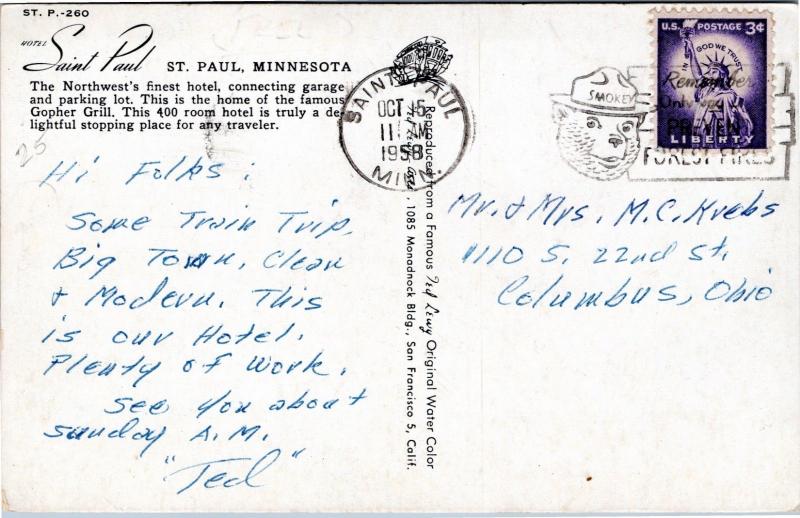 ST. P.-260
HOTEL Saint Paul ST. PAUL, MINNESOTA
The Northwest's finest hotel, connecting garage
and parking lot. This is the home of the famous
Gopher Grill. This 400 room hotel is truly a de-
lightful stopping place for any traveler.
25
Hi Folks:
Some Train Trip.
Big Town, Clean
& Modern. This
is our Hotel.
Plenty of work.
See you about
Sunday A.M.
"Ted"
SAINT PAUL
OCT 15
11 AM
1958
MINN.
Reproduced from a Famous Ted Lewy Original Water Color
, 1085 Monadnock Bldg., San Francisco 5, Calif.
U.S. POSTAGE 3¢
IN GOD WE TRUST
LIBERTY
SMOKEY
Remember
Only you can
PREVENT
FOREST FIRES
Mr. & Mrs. M.C. Krebs
1110 S. 22nd St.
Columbus, Ohio